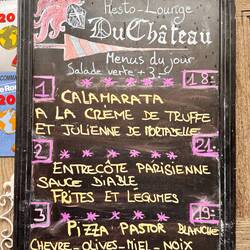 Resto-Lounge
DuChâteau
Menus du jour
Salade verte + 3.-
18.-
1 CALAMARATA
A LA CREME DE TRUFFE
ET JULIENNE DE PORTABELLE
21.-
2 ENTRECÔTE PARISIENNE
SAUCE DIABLE
FRITES ET LEGUMES
3 19.-
PIZZA PASTOR BLANCHE
CHEVRE-OLIVES-MIEL-NOIX